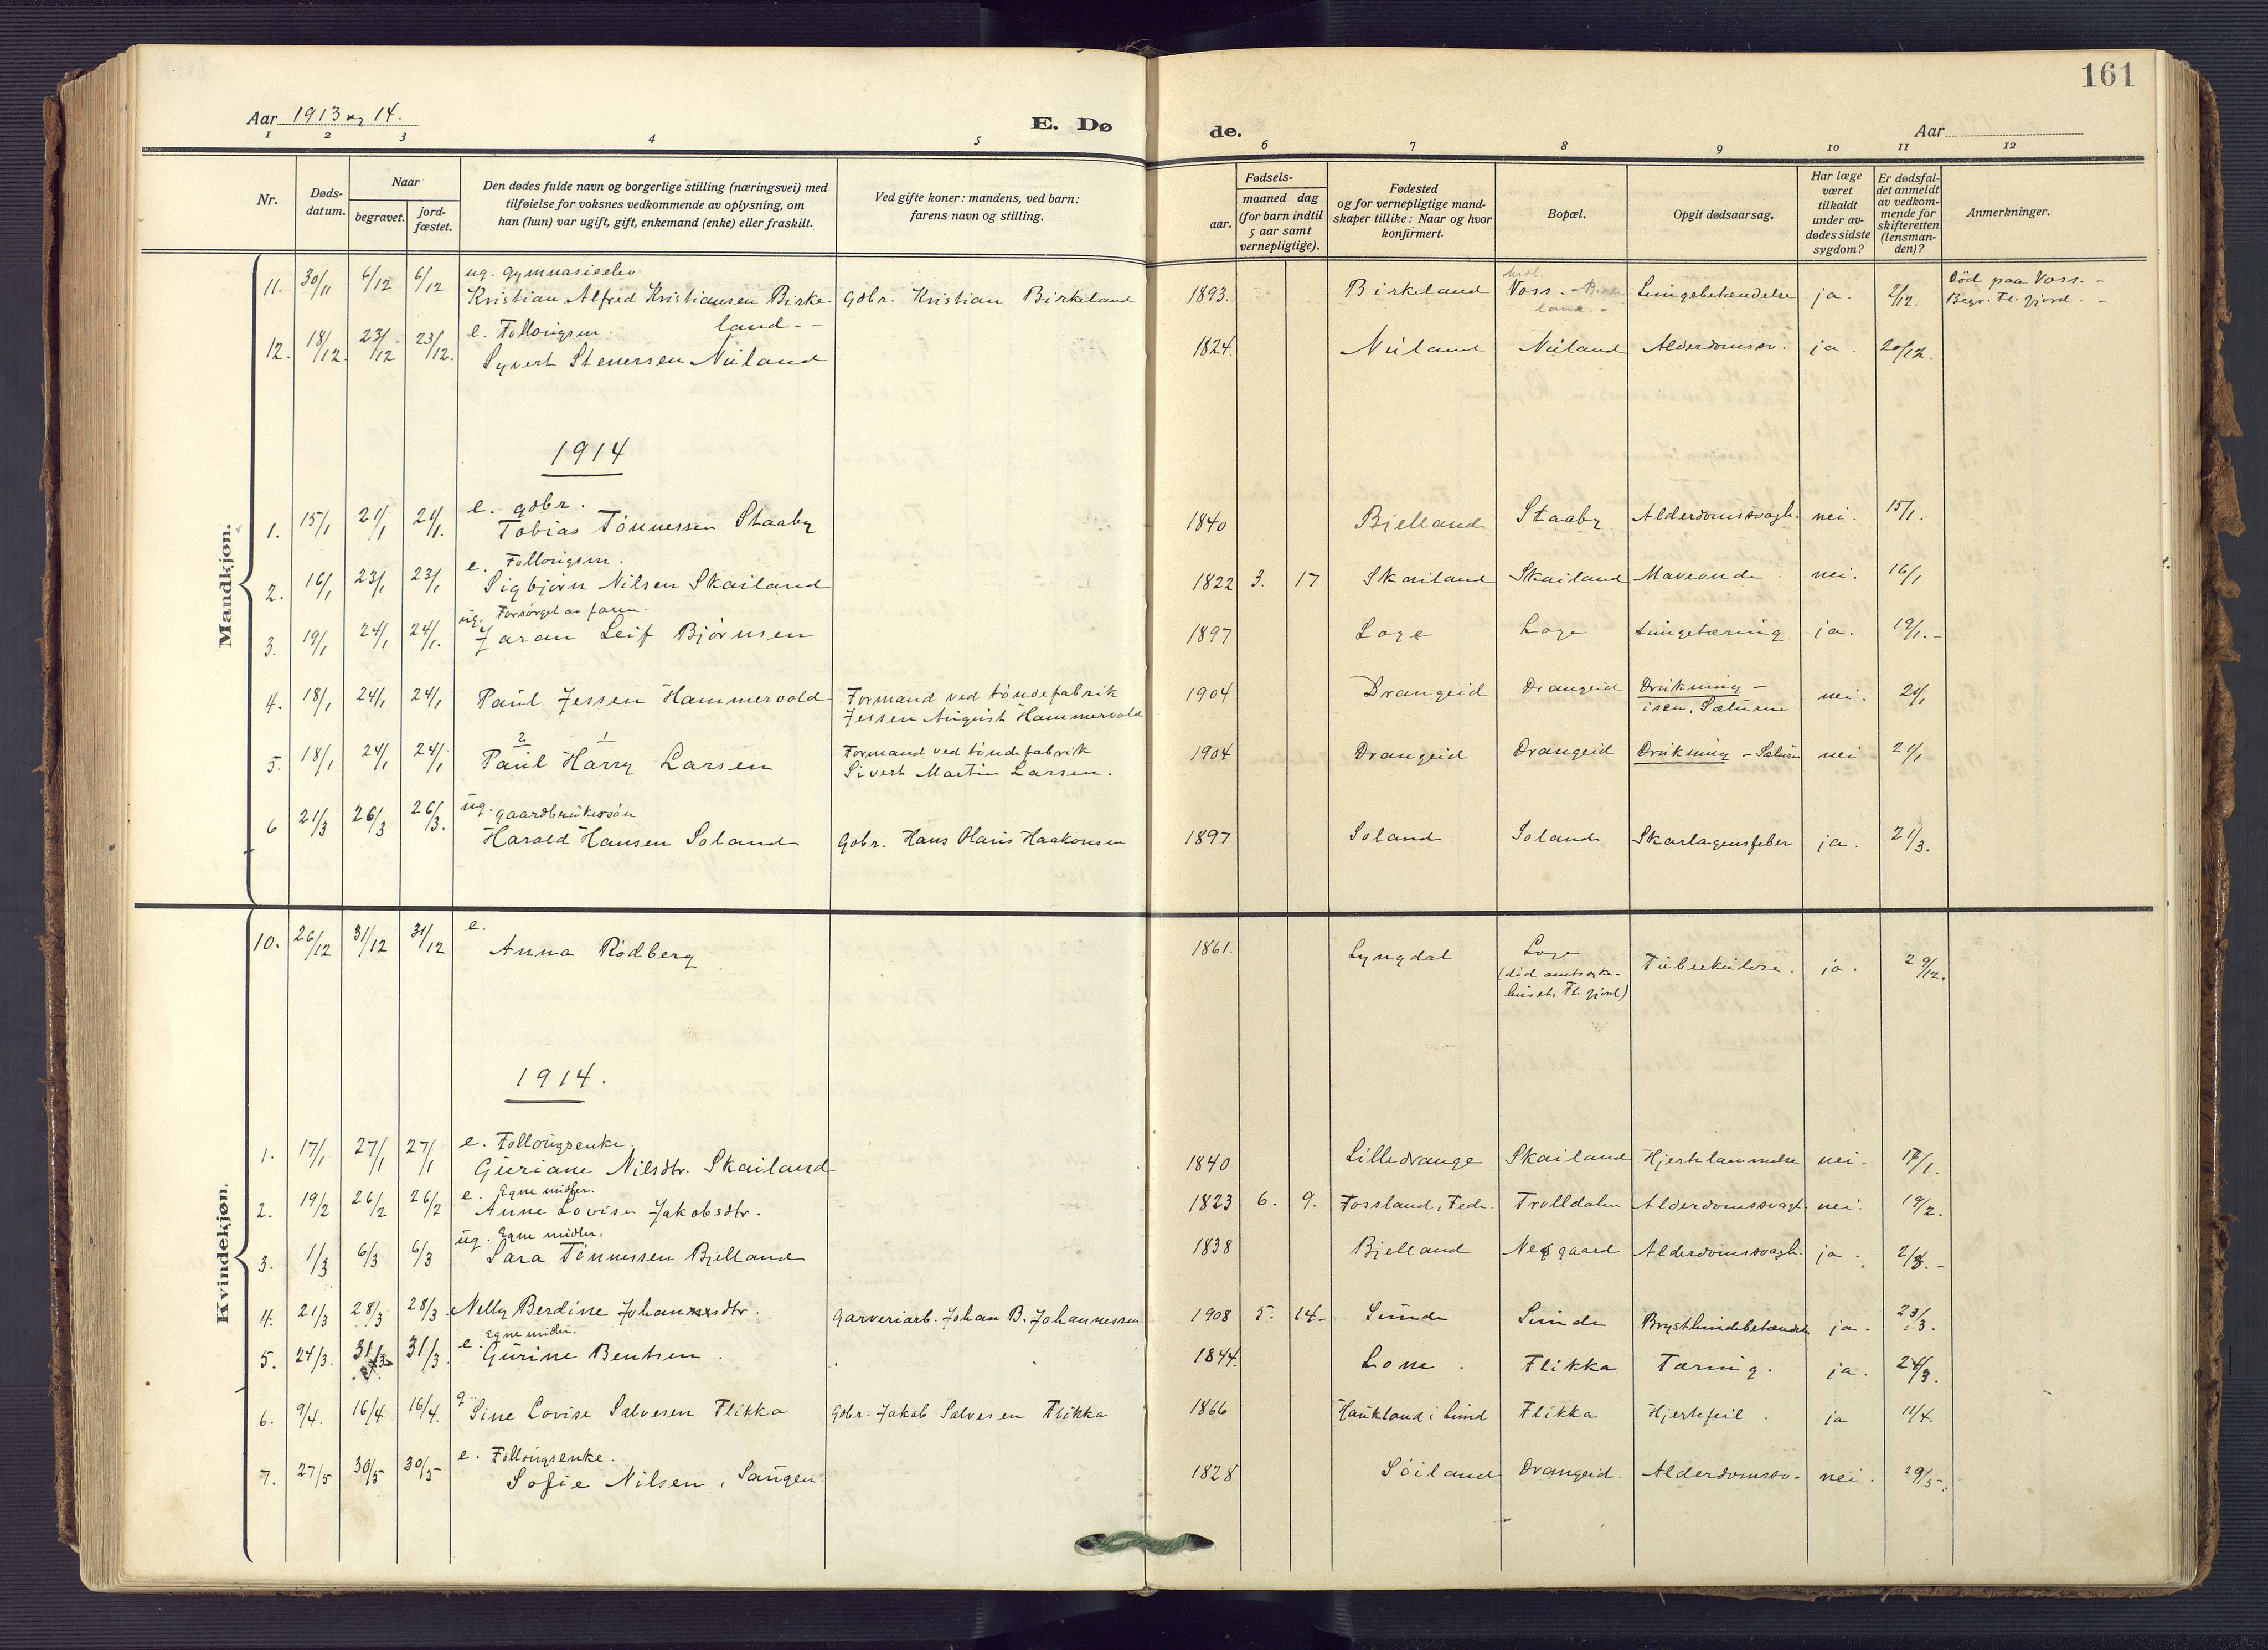 161
Aar 1913 og 14.
E. Dø
de.
Aar
1 2 3 4 5 6 7 8 9 10 11 12
Nr.
Døds-
datum.
Naar
begravet.
jord-
fæstet.
Den dødes fulde navn og borgerlige stilling (næringsvei) med
tilføielse for voksnes vedkommende av oplysning, om
han (hun) var ugift, gift, enkemand (enke) eller fraskilt.
Ved gifte koner: mandens, ved barn:
farens navn og stilling.
Fødsels-
aar.
maaned dag
(for barn indtil
5 aar samt
vernepligtige).
Fødested
og for vernepligtige mand-
skaper tillike: Naar og hvor
konfirmert.
Bopæl.
Opgit dødsaarsag.
Har læge
været
tilkaldt
under av-
dødes sidste
sygdom?
Er dødsfal-
det anmeldt
av vedkom-
mende for
skifteretten
(lensman-
den)?
Anmerkninger.
Mandkjøn.
ug. gymnasieelev
11. 30/11 6/12 6/12 Kristian Alfred Kristiansen Birke- Gdbr. Kristian Birkeland 1893. Birkeland Voss. Lungebetændelse ja. 2/12. Død paa Voss. -
land. - Begr. Fl. fjord. -
e. Føllougsm.
12. 18/12. 23/12 23/12. Syvert Stenersen Nuland 1824. Nuland Nuland Alderdomssv. ja. 20/12.
1914
e. gdbr.
1. 15/1 21/1 21/1. Tobias Tønnessen Staaby 1840 Bjelland Staaby Alderdomssvagh. nei. 15/1.
e. Føllougsm.
2. 16/1 23/1 23/1 Sigbjørn Nilsen Skailand 1822 3. 17 Skailand Skailand Maveonde. nei. 16/1
ug. Forsørget av faren.
3. 19/1 24/1 24/1. Jaran Leif Bjørnsen 1897 Loge Loge Lungetæring ja. 19/1. -
4. 18/1 24/1 24/1 Paul Jessen Hammervold Formand ved tøndefabrik 1904 Drangeid Drangeid Drukning - nei. 21/1
Jessen August Hammervold isen,
2 1
5. 18/1 24/1 24/1 Paul Harry Larsen Formand ved tøndefabrik 1904 Drangeid Drangeid Drukning nei 21/1
Sivert Martin Larsen.
ug. gaardbrukersøn
6 21/3 26/3 26/3. Harald Hansen Soland Gdbr. Hans Olaus Haakonsen 1897 Soland Soland Skarlagensfeber ja. 21/3.
Kvindekjøn.
e.
10. 26/12 31/12 31/12 Anna Rødberg 1861. Lyngdal Loge Tuberkulose. ja. 29/12.
(død amtssyke-
huset, Fl. fjord)
1914.
e. Føllougsenke.
1. 17/1 27/1 27/1 Guriane Nilsdtr. Skailand 1840 Lilledrange Skailand Hjertelammelse nei. 17/1.
e. Egne midler.
2. 19/2 26/2 26/2 Anne Lovise Jakobsdtr. 1823 6. 9. Fossland, Feda. Trolldalen Alderdomssvagh. nei. 19/2.
ug. Egne midler.
3. 1/3 6/3 6/3 Sara Tønnessen Bjelland 1838 Bjelland Nesgaard Alderdomssvagh. ja. 2/3. -
4. 21/3 28/3 28/3. Nelly Berdine Johannsdtr. Garveriarb. Johan B. Johannessen 1908 5. 14. Sunde Sunde Brysthindebetændel ja. 23/3.
e. Egne midler.
5. 24/3. 31/3 31/3. Gurine Bentsen. 1844. Lone. Flikka Tæring. ja. 24/3.
6. 9/4. 16/4 16/4. g Sine Lovise Salvesen Flikka Gdbr. Jakob Salvesen Flikka 1866 Haukland i Lund Flikka Hjertefeil. ja 11/4.
e. Føllougsenke.
7. 27/5 30/5 30/5- Sofie Nilsen, Saugen. 1828 Søiland Drangeid. Alderdomssv. nei. 29/5-.